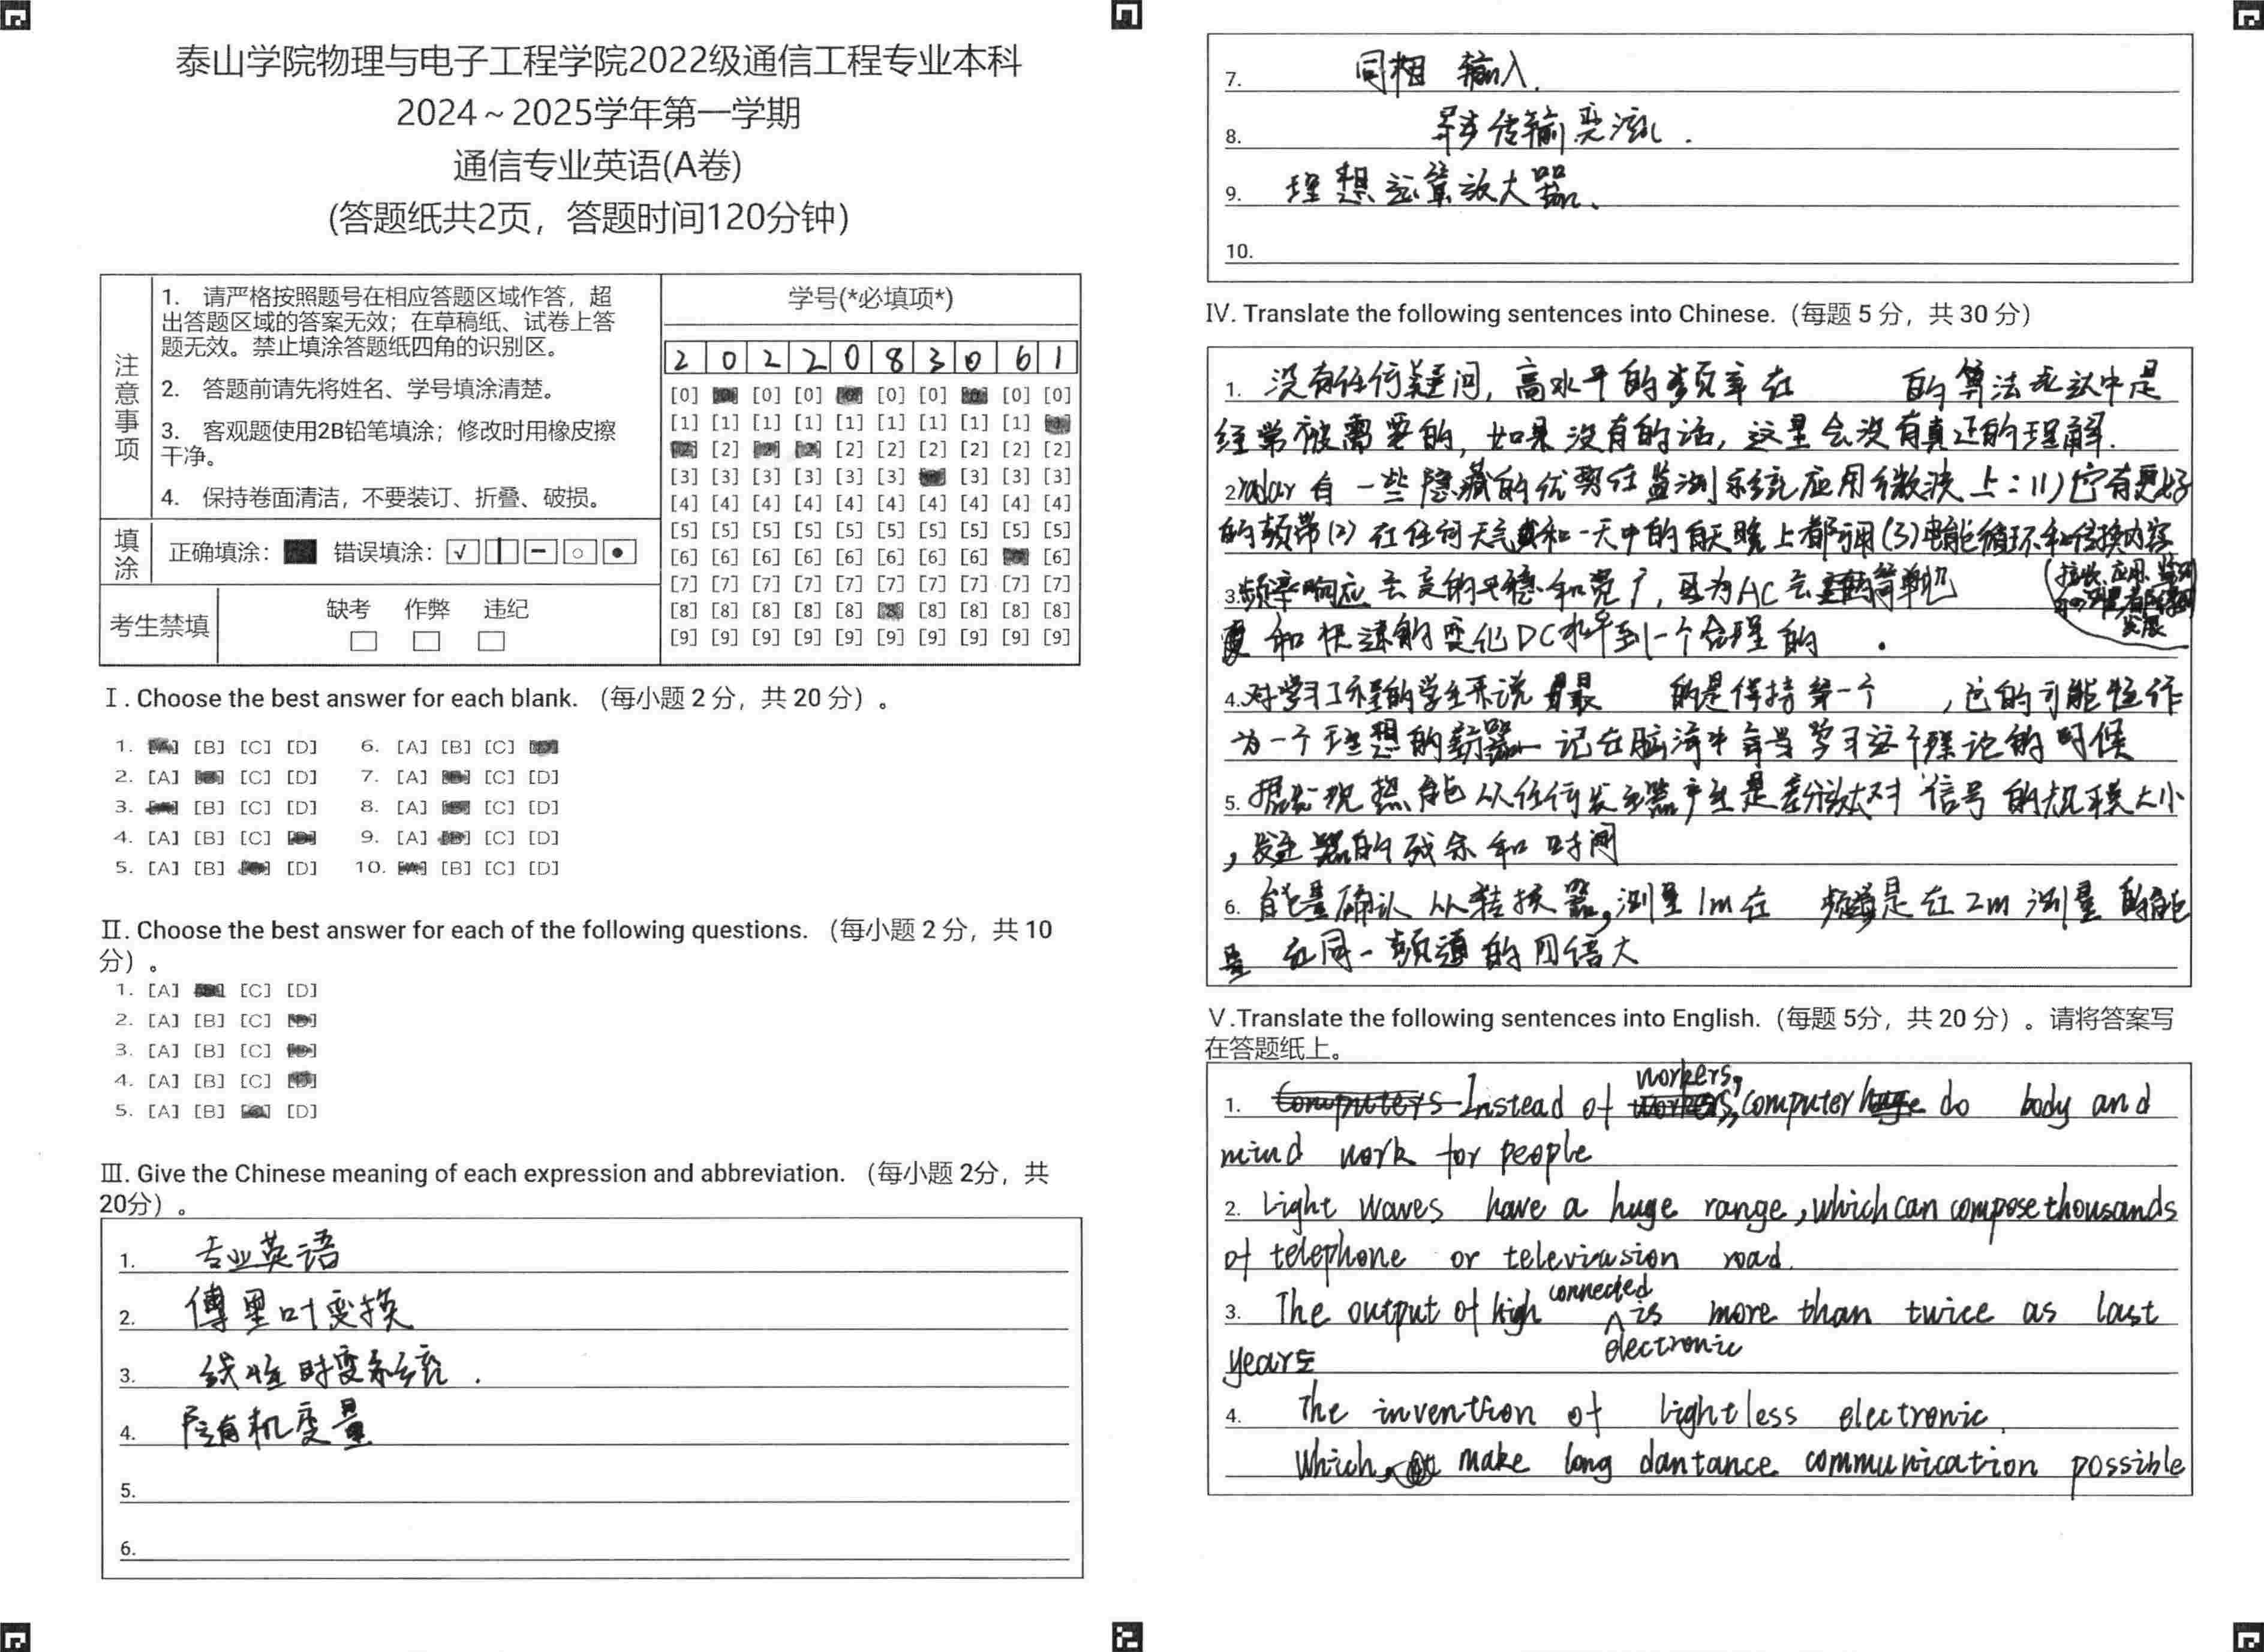 泰山学院物理与电子工程学院2022级通信工程专业本科
2024～2025学年第一学期
通信专业英语(A卷)
(答题纸共2页，答题时间120分钟)
注意事项
1. 请严格按照题号在相应答题区域作答，超
出答题区域的答案无效；在草稿纸、试卷上答
题无效。禁止填涂答题纸四角的识别区。
2. 答题前请先将姓名、学号填涂清楚。
3. 客观题使用2B铅笔填涂；修改时用橡皮擦
干净。
4. 保持卷面清洁，不要装订、折叠、破损。
填涂
正确填涂： 错误填涂：
考生禁填
缺考 作弊 违纪
学号(*必填项*)
2 0 2 2 0 8 3 0 6 1
[0] [0] [0] [0] [0] [0] [0]
[1] [1] [1] [1] [1] [1] [1] [1] [1]
[2] [2] [2] [2] [2] [2] [2]
[3] [3] [3] [3] [3] [3] [3] [3] [3]
[4] [4] [4] [4] [4] [4] [4] [4] [4] [4]
[5] [5] [5] [5] [5] [5] [5] [5] [5] [5]
[6] [6] [6] [6] [6] [6] [6] [6] [6]
[7] [7] [7] [7] [7] [7] [7] [7] [7] [7]
[8] [8] [8] [8] [8] [8] [8] [8] [8]
[9] [9] [9] [9] [9] [9] [9] [9] [9] [9]
Ⅰ. Choose the best answer for each blank. （每小题 2 分，共 20 分）。
1. [B] [C] [D] 6. [A] [B] [C]
2. [A] [C] [D] 7. [A] [C] [D]
3. [B] [C] [D] 8. [A] [C] [D]
4. [A] [B] [C] 9. [A] [C] [D]
5. [A] [B] [D] 10. [B] [C] [D]
Ⅱ. Choose the best answer for each of the following questions. （每小题 2 分，共 10
分）。
1. [A] [C] [D]
2. [A] [B] [C]
3. [A] [B] [C]
4. [A] [B] [C]
5. [A] [B] [D]
Ⅲ. Give the Chinese meaning of each expression and abbreviation. （每小题 2分，共
20分）。
1. 专业英语
2. 傅里叶变换
3. 线性时变系统.
4. 随机变量
5.
6.
7. 同相 输入.
8. 异步传输
9. 理想运算放大器.
10.
Ⅳ. Translate the following sentences into Chinese.（每题 5 分，共 30 分）
1. 没有任何疑问, 高水平的频率在 的算法 中是
经常被需要的, 如果没有的话, 这里会没有真正的理解.
2 radar 有一些隐藏的优势在监测系统应用微波上:(1)它有更好
的频带(2)在任何天气 和一天中的白天晚上都可用(3)
3 频率响应会变的平稳和宽广, 因为AC会
和快速的变化DC水平到一个合理的 .
4.对学习工程的学生来说 最 的是保持 一个 ,它的可能性作
为一个理想的 记在脑海中 学习这个理论的时候
5. 据发现热能从任何发生器产生是 对信号的 大小
, 的残余和时间
6. 能量确认从转换器,测量1m在 频道是在2m测量的能
量 在同一频道的四倍大
Ⅴ.Translate the following sentences into English.（每题 5分，共 20 分）。请将答案写
在答题纸上。
1. Instead of workers, computer do body and
mind work for people
2. Light waves have a huge range, which can compose thousands
of telephone or road.
3. The output of high connected is more than twice as last
electronic
years
4. The invention of lightless electronic.
Which make long dantance communication possible